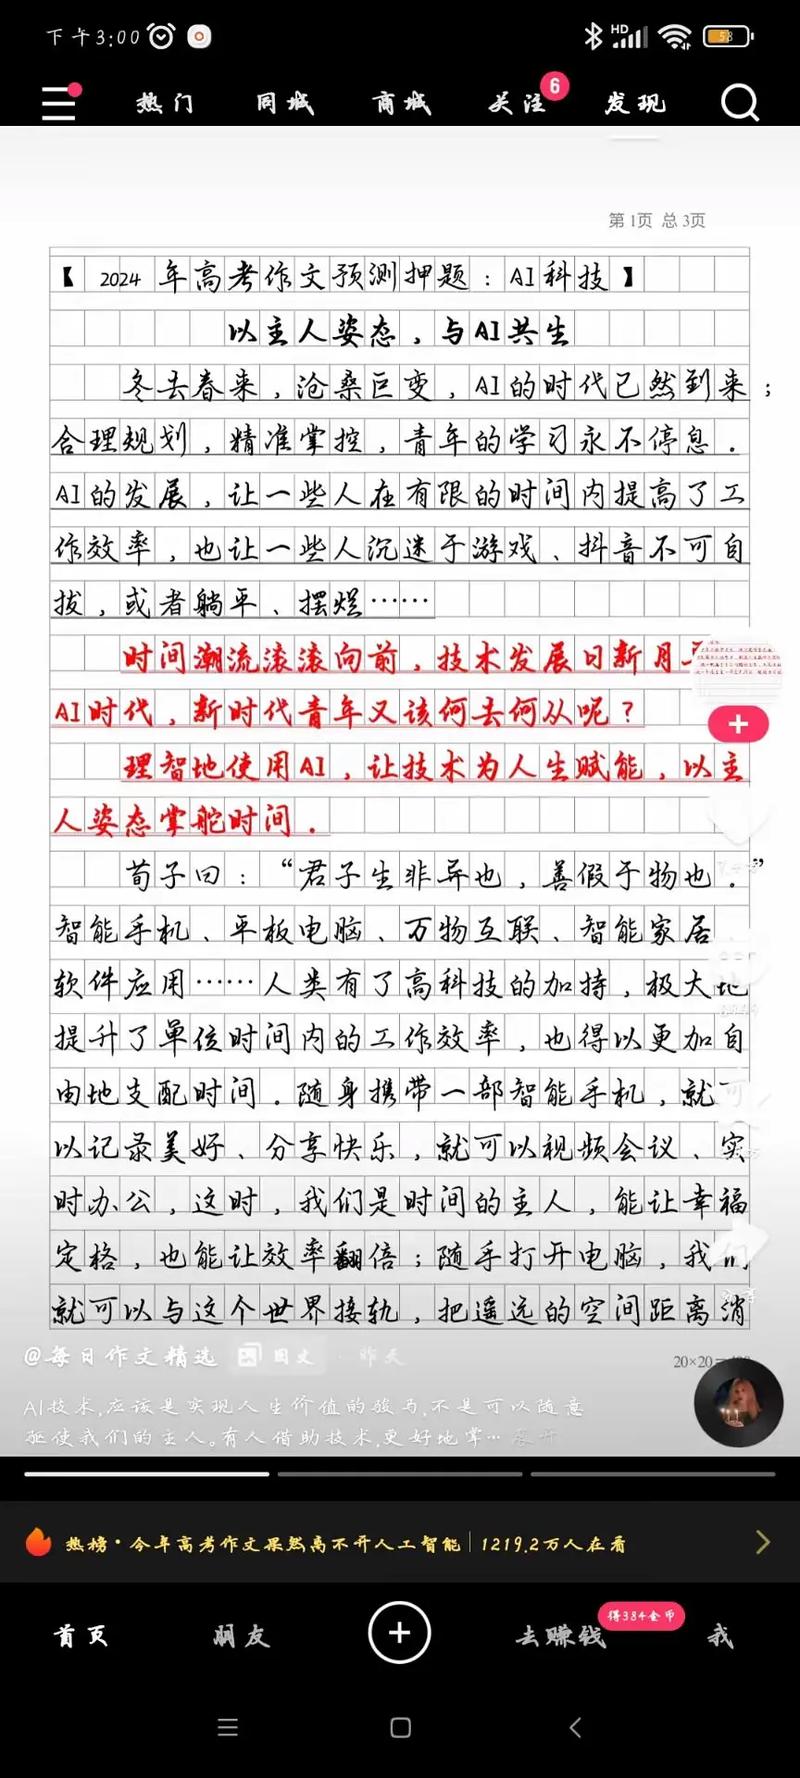 下午3:00
HD
58
热门 同城 商城 关注 6 发现
第1页 总3页
【2024年高考作文预测押题：AI科技】
以主人姿态，与AI共生
冬去春来，沧桑巨变，AI的时代已然到来；
合理规划，精准掌控，青年的学习永不停息．
AI的发展，让一些人在有限的时间内提高了工
作效率，也让一些人沉迷于游戏、抖音不可自
拔，或者躺平、摆烂……
时间潮流滚滚向前，技术发展日新月
AI时代，新时代青年又该何去何从呢？
理智地使用AI，让技术为人生赋能，以主
人姿态掌舵时间．
荀子曰：“君子生非异也，善假于物也．”
智能手机、平板电脑、万物互联、智能家居、
软件应用……人类有了高科技的加持，极大地
提升了单位时间内的工作效率，也得以更加自
由地支配时间．随身携带一部智能手机，就可
以记录美好、分享快乐，就可以视频会议、实
时办公，这时，我们是时间的主人，能让幸福
定格，也能让效率翻倍；随手打开电脑，我们
就可以与这个世界接轨，把遥远的空间距离消
@每日作文精选 图文 · 昨天
20×20=400
AI技术,应该是实现人生价值的骏马,不是可以随意
驱使我们的主人。有人借助技术,更好地掌… 展开
热榜·今年高考作文果然离不开人工智能 | 1219.2万人在看
首页 朋友 去赚钱 得384金币 我